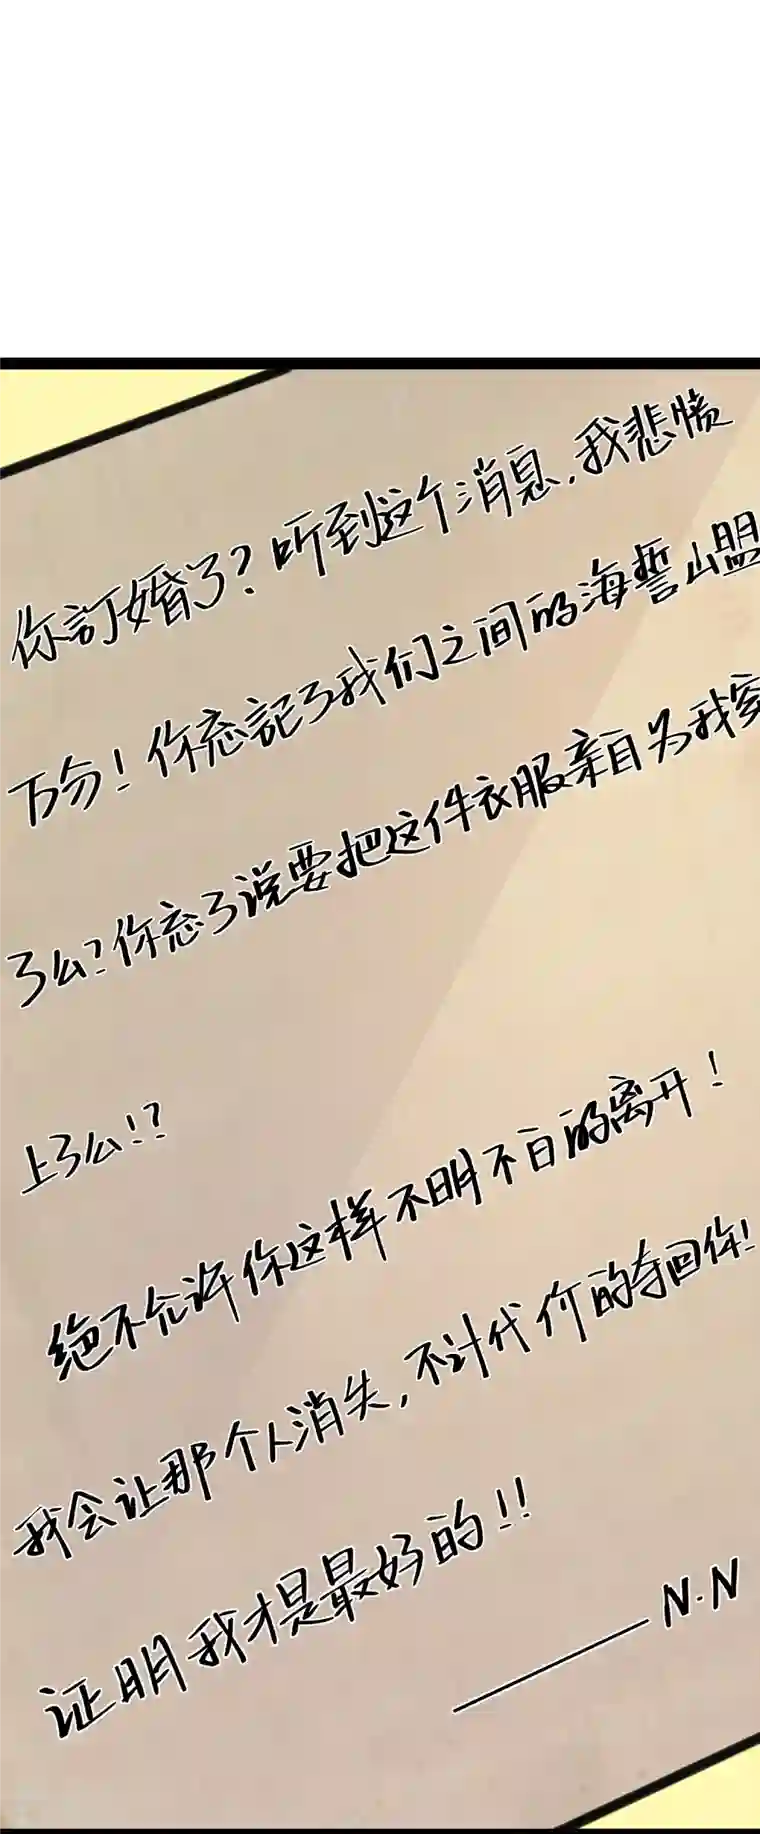 你訂婚了？听到这个消息，我悲愤
万分！你忘記了我们之间的海誓山盟
了么？你忘了说要把这件衣服亲自为我穿
上了么！？
绝不允许你这样不明不白的离开！
我会让那个人消失，不计代价的夺回你！
证明我才是最好的！！
——N·N